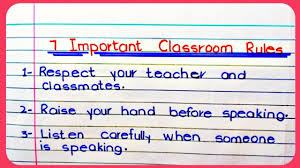 7 Important Classroom Rules
1- Respect your teacher and
classmates.
2- Raise your hand before speaking.
3- Listen carefully when someone
is speaking.